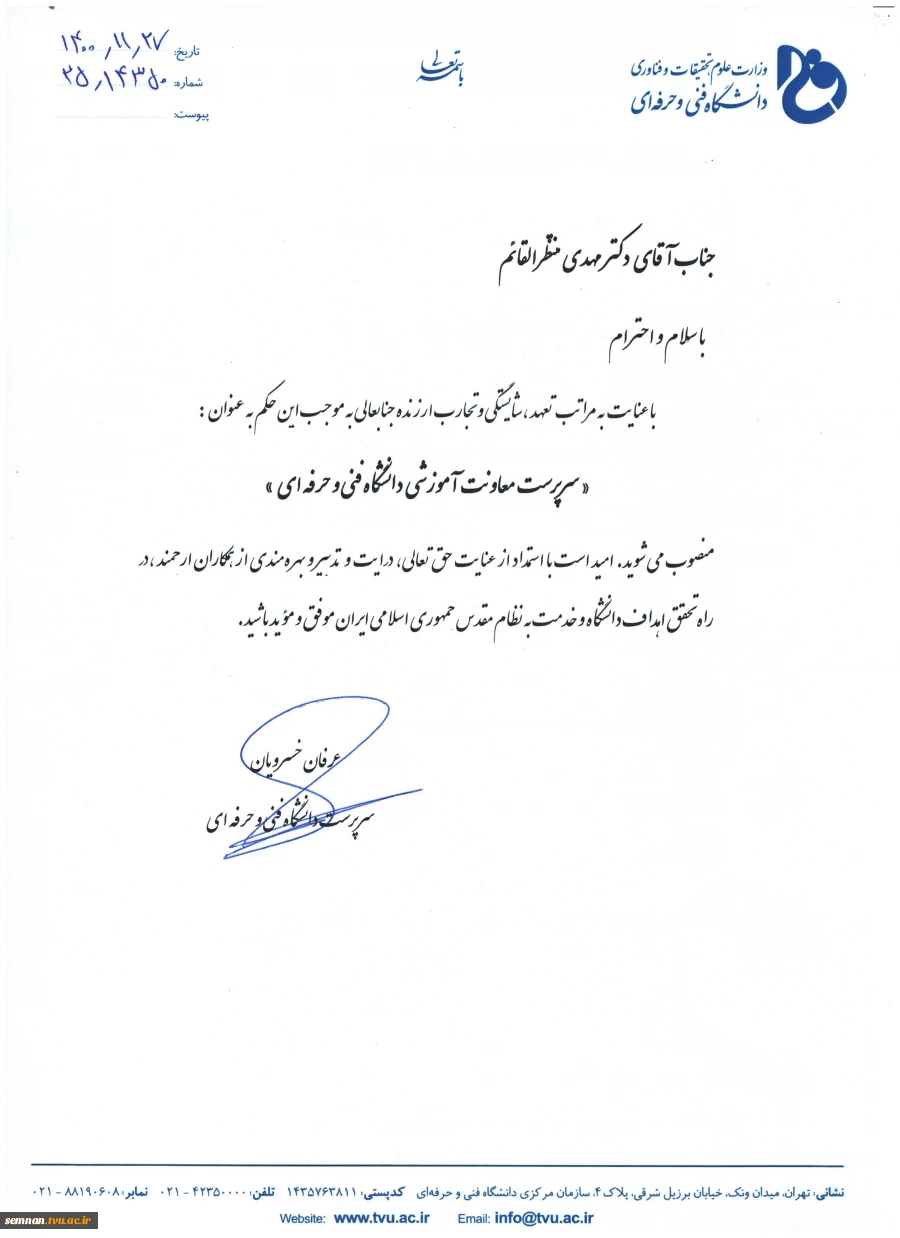 وزارت علوم تحقیقات و فناوری
دانشگاه فنی و حرفه‌ای
باسمه تعالی
تاریخ: ۱۴۰۰/۱۱/۲۷
شماره: ۲۵/۱۴۳۵۰
پیوست:
جناب آقای دکتر مهدی منتظرالقائم
با سلام و احترام
با عنایت به مراتب تعهد، شایستگی و تجارب ارزنده جنابعالی به موجب این حکم به عنوان:
«سرپرست معاونت آموزشی دانشگاه فنی و حرفه ای»
منصوب می شوید. امید است با استمداد از عنایت حق تعالی، درایت و تدبیر و بهره مندی از همکاران ارجمند، در
راه تحقق اهداف دانشگاه و خدمت به نظام مقدس جمهوری اسلامی ایران موفق و مؤید باشید.
عرفان خسرویان
سرپرست دانشگاه فنی و حرفه ای
نشانی: تهران، میدان ونک، خیابان برزیل شرقی، پلاک ۴، سازمان مرکزی دانشگاه فنی و حرفه‌ای کدپستی: ۱۴۳۵۷۶۳۸۱۱ تلفن: ۴۲۳۵۰۰۰۰ - ۰۲۱ نمابر: ۸۸۱۹۰۶۰۸ - ۰۲۱
Website: www.tvu.ac.ir Email: info@tvu.ac.ir
semnan.tvu.ac.ir